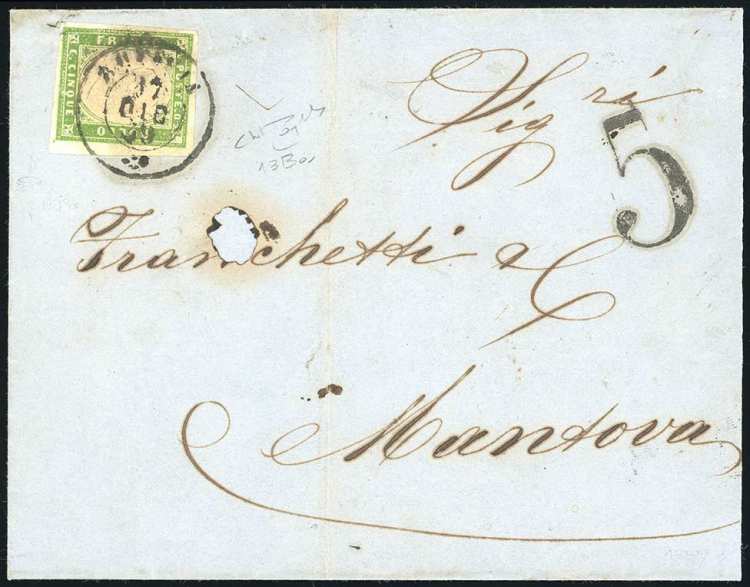 C. CINQUE
17
DIC
59
Sig.ri
5
13Ba
Franchetti & C
Mantova